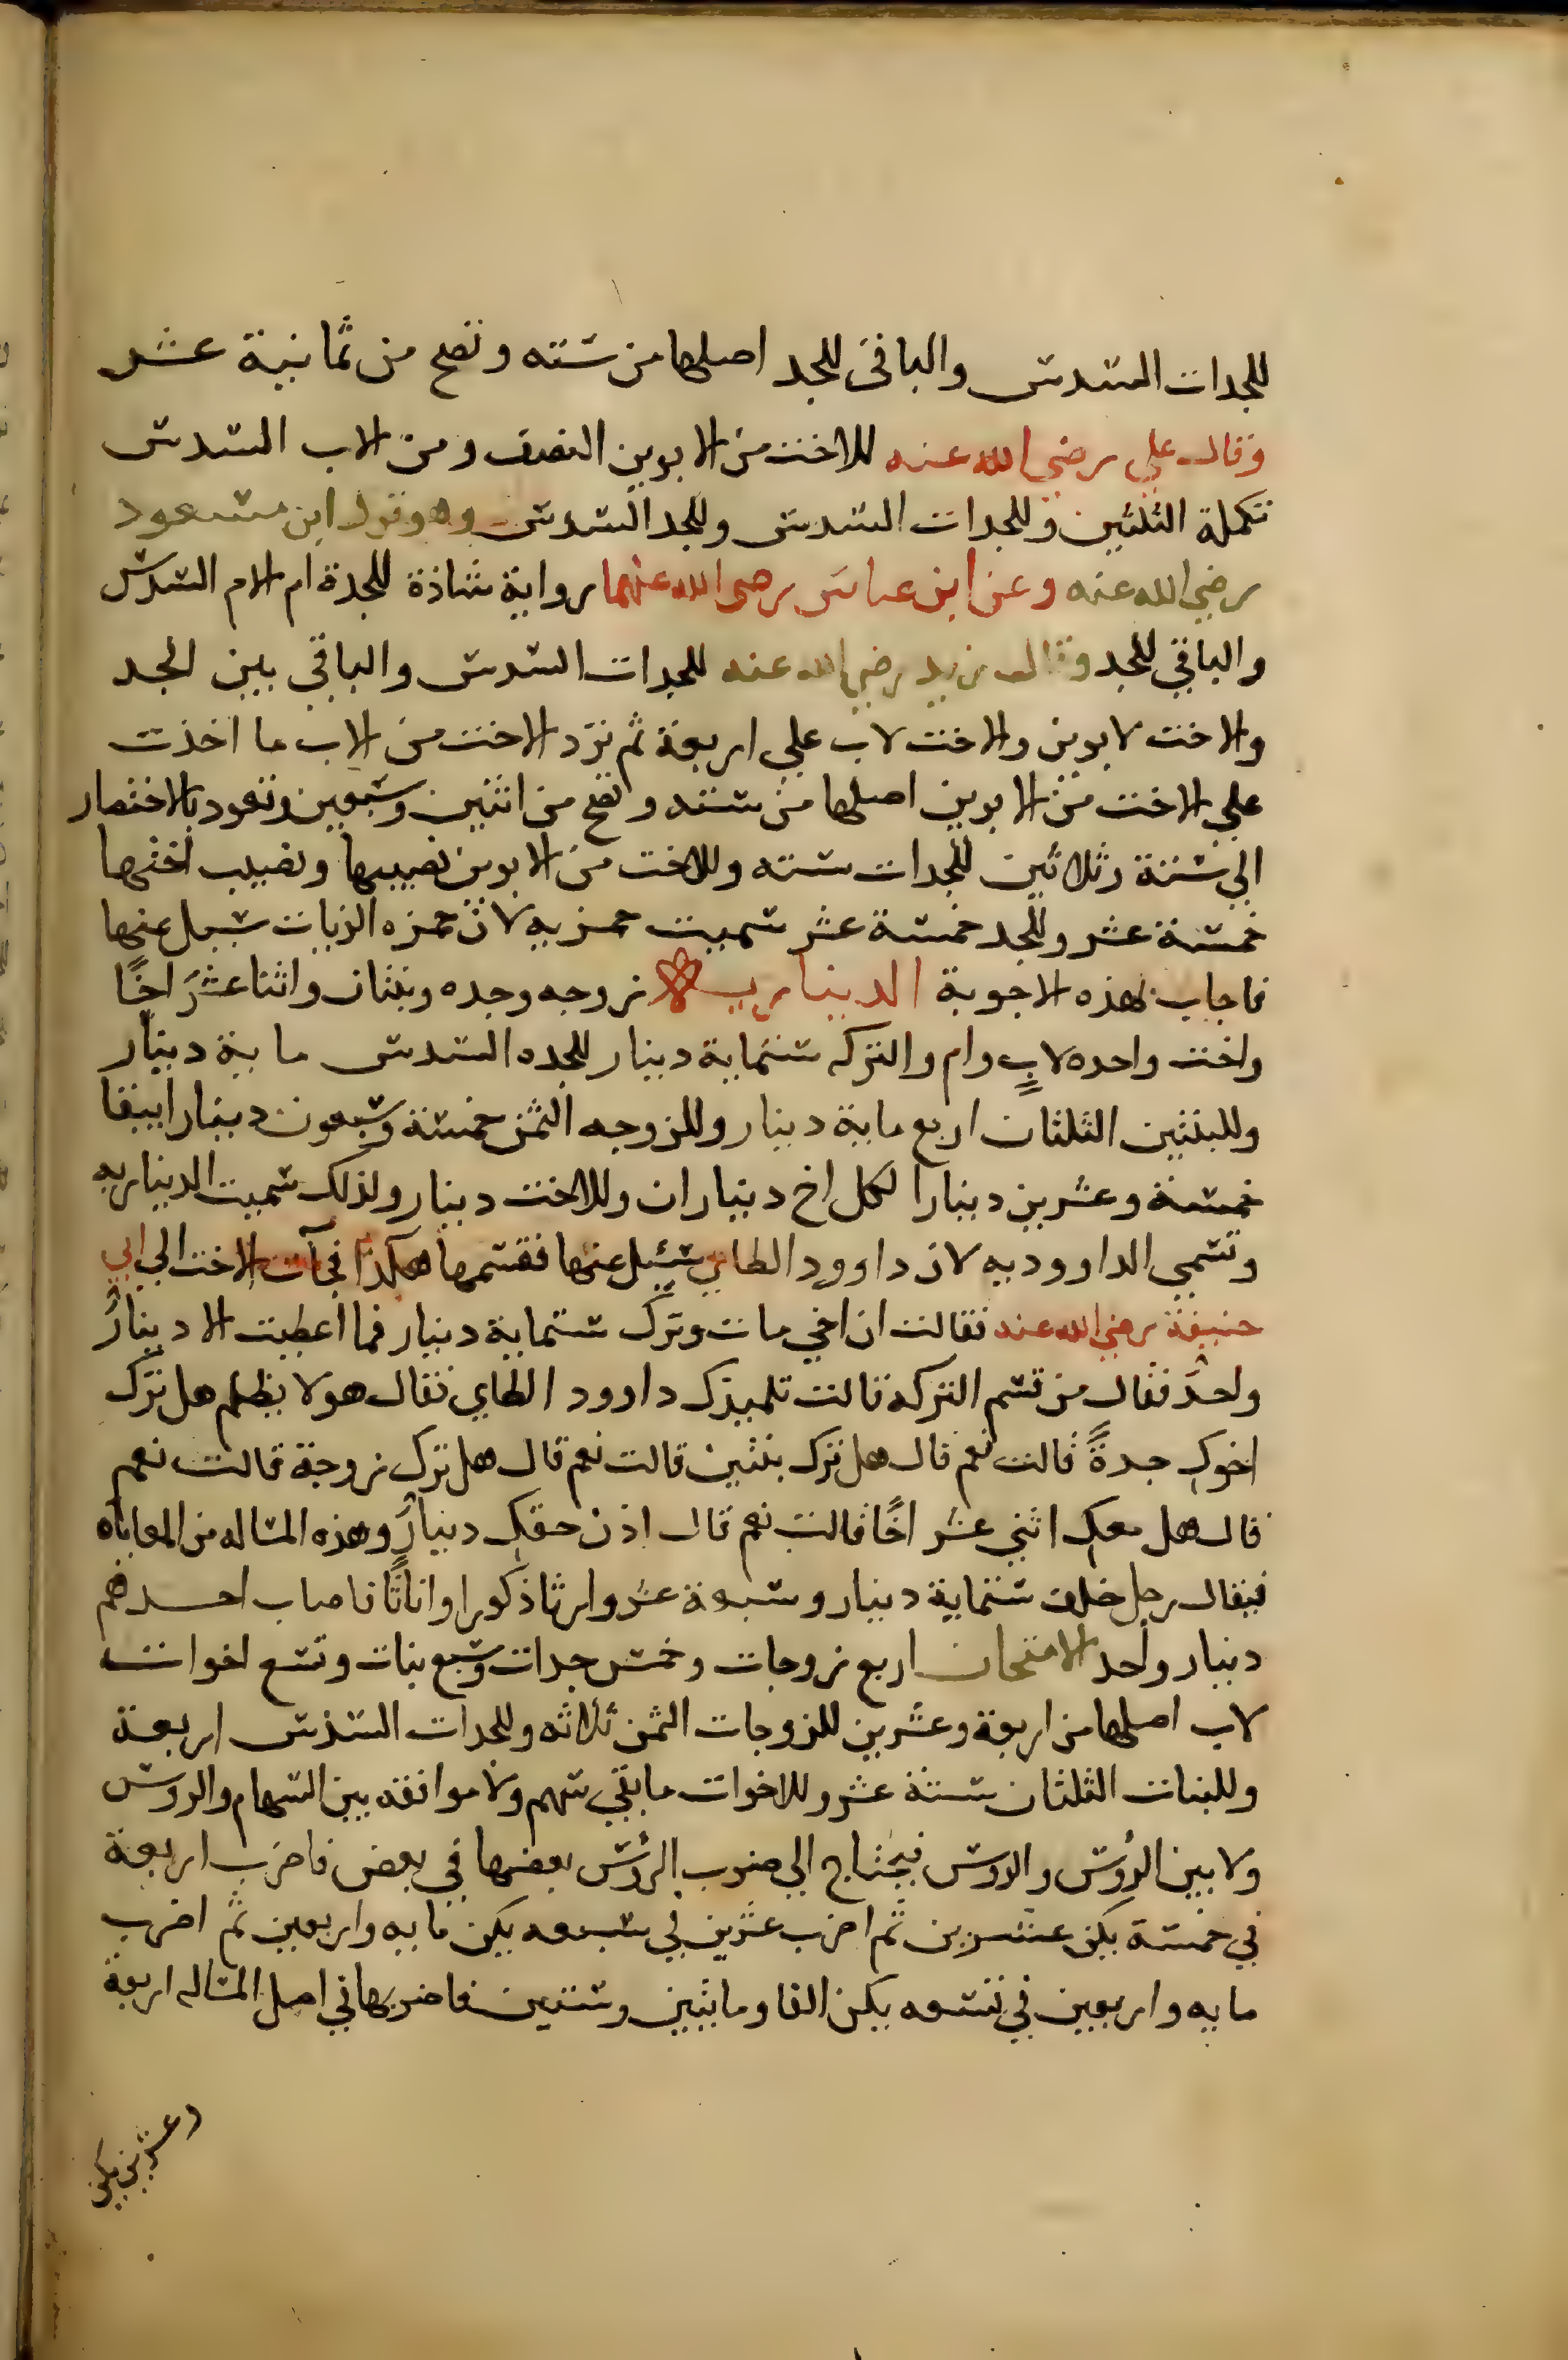 للجدات السدس والباقي للجد اصلها من سته وتصح من ثمانية عشر
وقال علي رضي الله عنه للاخت من الابوين النصف ومن الاب السدس
تكملة الثلثين وللجدات السدس وللجد السدس وهو قول ابن مسعود
رضي الله عنه وعن ابن عباس رضي الله عنهما رواية شاذة للجدة ام الام السدس
والباقي للجد وقال زيد رضي الله عنه للجدات السدس والباقي بين الجد
والاخت لابوين والاخت لاب علي اربعة ثم ترد الاخت من الاب ما اخذت
علي الاخت من الابوين اصلها من سته وتصح من اثنين وسبعين وتعود بالاختصار
الي ستة وثلاثين للجدات سته وللاخت من الابوين نصيبها ونصيب اختها
خمسة عشر وللجد خمسة عشر سميت حمزيه لان حمزه الزيات سيل عنها
فاجاب بهذه الاجوبة الدينارية زوجه وجده وبنتان واثنا عشر اخًا
واخت واحده لابٍ وام والتركه ستماية دينار للجده السدس ماية دينار
وللبنتين الثلثان اربع ماية دينار وللزوجه الثمن خمسة وسبعون دينارا يبقا
خمسة وعشرين دينارا لكل اخ ديناران وللاخت دينار ولذلك سميت الديناريه
وتسمي الداووديه لان داوود الطاي سيل عنها فقسمها هكذا فجآت الاخت الي ابي
حنيفة رضي الله عنه فقالت ان اخي مات وترك ستماية دينار فما اعطيت الا دينارٌ
واحدٌ فقال من قسم التركه قالت تلميذك داوود الطاي فقال هو لا يظلم هل ترك
اخوك جدةً قالت نعم قال هل ترك بنتين قالت نعم قال هل ترك زوجة قالت نعم
قال هل معك اثني عشر اخًا قالت نعم قال اذن حقك دينارٌ وهذه المساله من المعاياه
فيقال رجل خلف ستماية دينار وسبعة عشر وارثا ذكورا واناثًا فاصاب احدهم
دينار واحد الامتحان اربع زوجات وخمس جدات وسبع بنات وتسع اخوات
لاب اصلها من اربعة وعشرين للزوجات الثمن ثلاثه وللجدات السدس اربعة
وللبنات الثلثان ستة عشر وللاخوات ما بقي سهم ولا موافقه بين السهام والروس
ولا بين الروس والروس فيحتاج الي ضرب الروس بعضها في بعض فاضرب اربعة
في خمسة يكن عشرين ثم اضرب عشرين في سبعه يكن مايه واربعين ثم اضرب
مايه واربعين في تسعه يكن الفا ومايتين وستين فاضربها في اصل المساله اربعة
وعشرين يكن